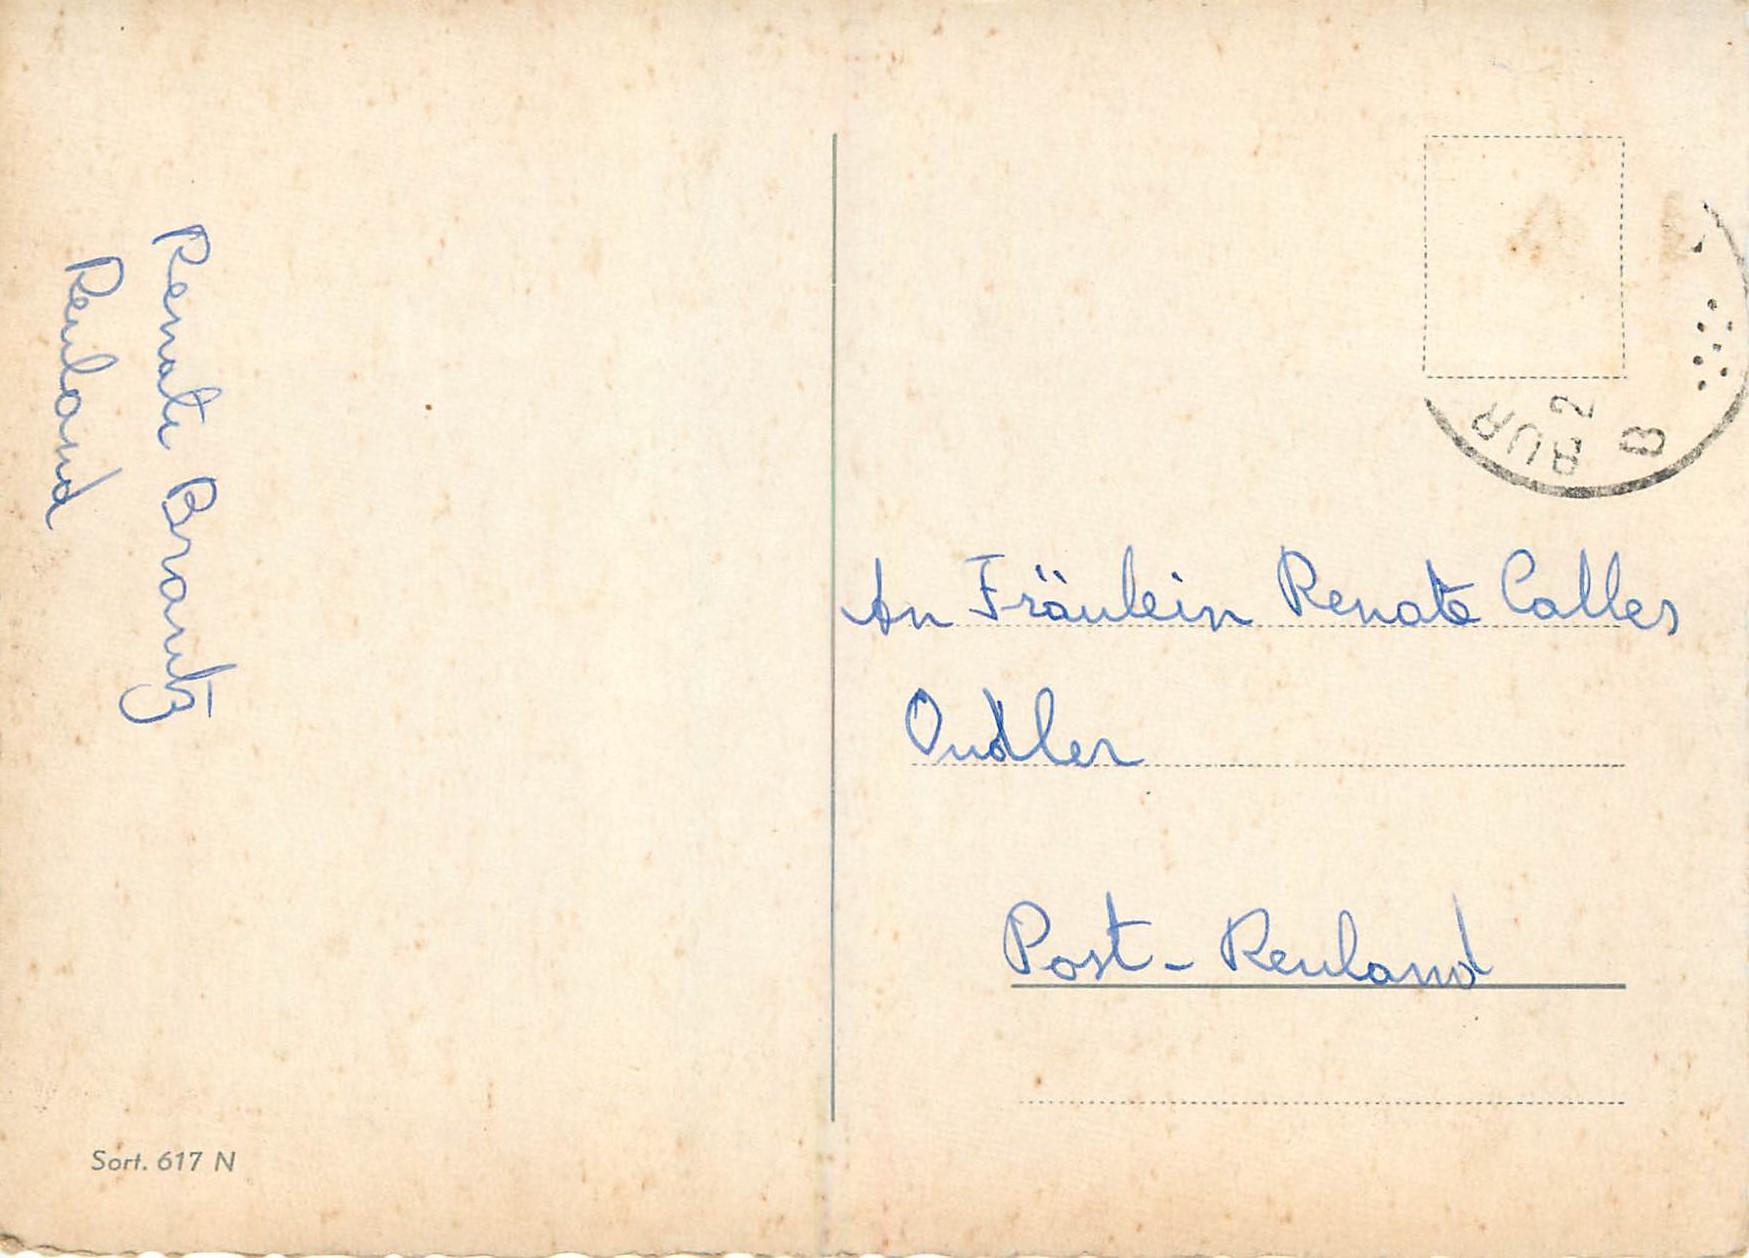 Renate Brantz
Reuland
An Fräulein Renate Calles
Oudler
Post-Reuland
Sort. 617 N